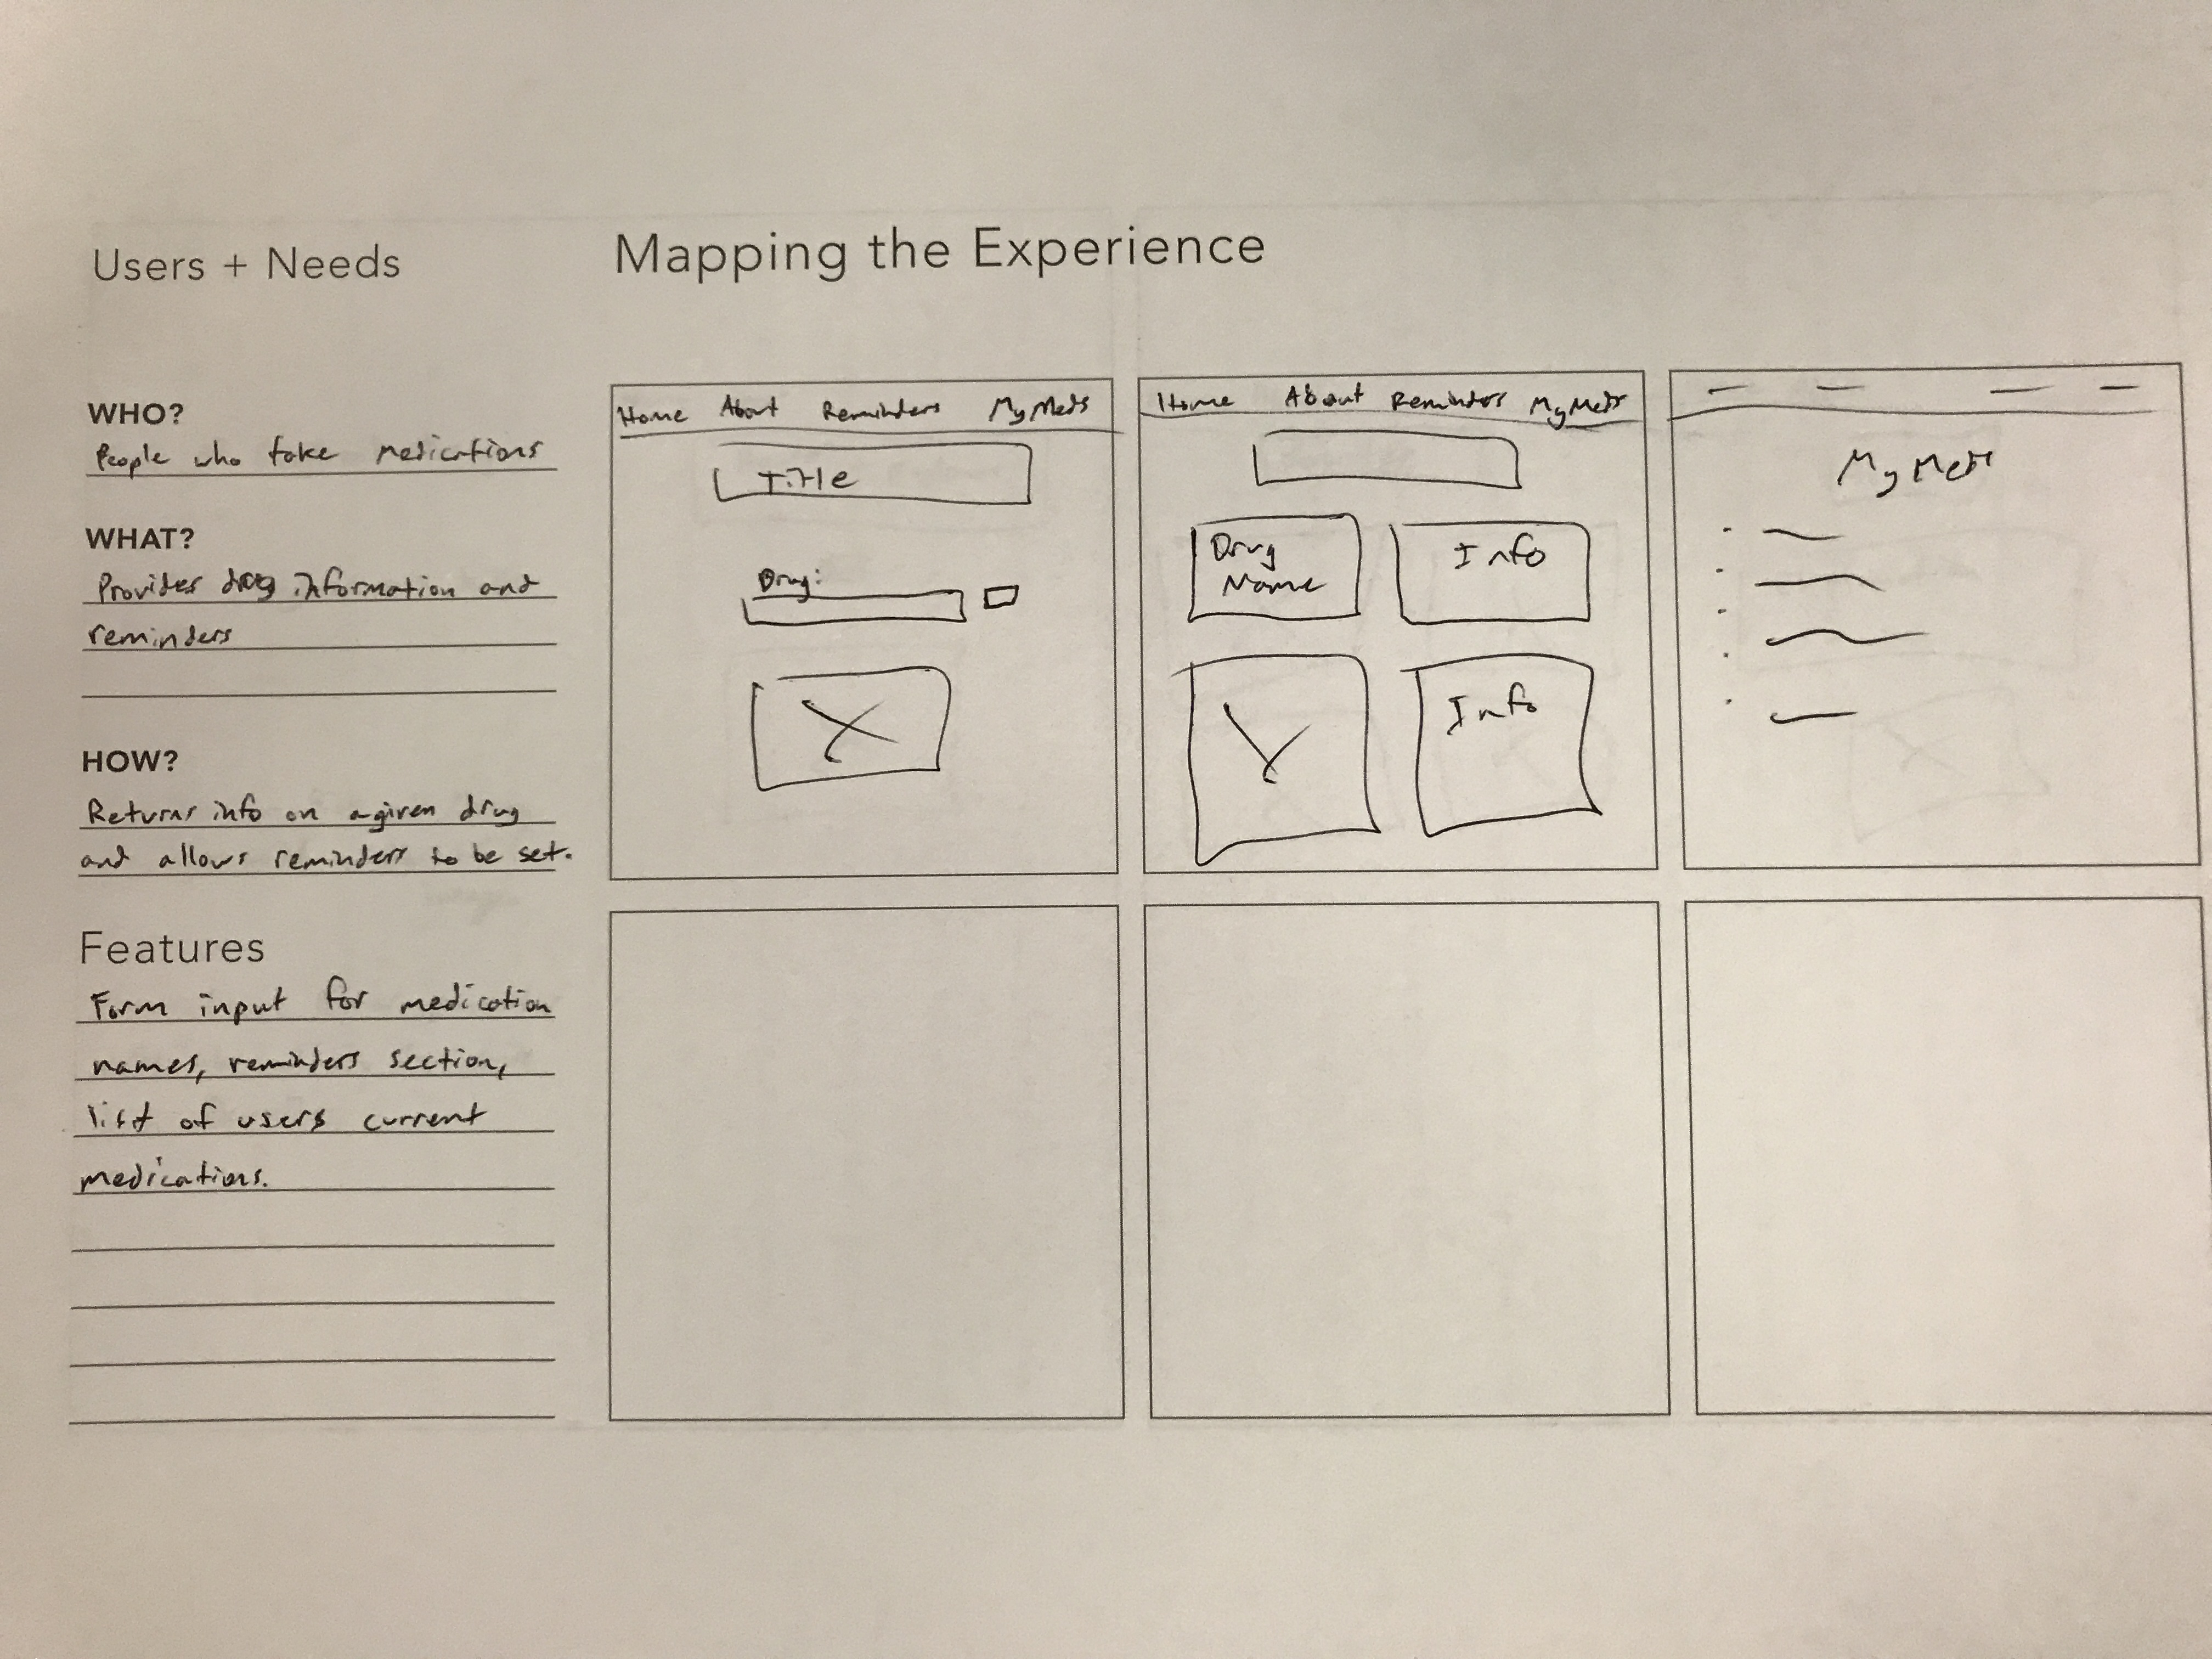 Users + Needs
WHO?
People who take medications
WHAT?
Provides drug information and
reminders
HOW?
Returns info on a given drug
and allows reminders to be set.
Features
Form input for medication
names, reminders section,
list of users current
medications.
Mapping the Experience
Home About Reminders MyMeds
Title
Drug:
Home About Reminders MyMeds
Drug
Name
Info
Info
My Meds